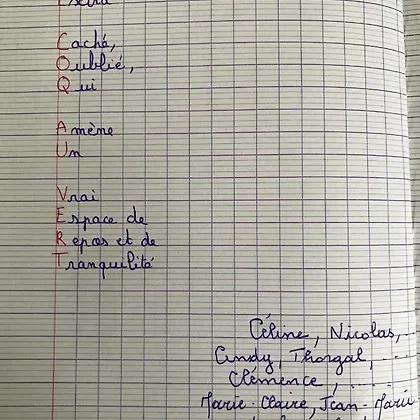 Caché,
Oublié,
Qui
Amène
Un
Vrai
Espace de
Repos et de
Tranquilité
Céline, Nicolas,
Cindy, Thorgal,
Clémence,
Marie-Claire, Jean-Marie